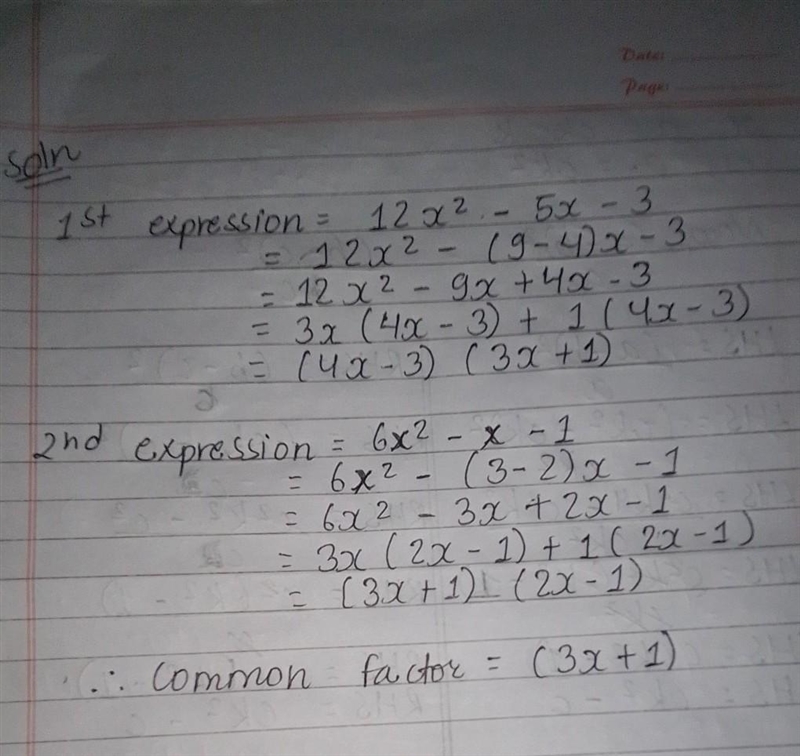 Date:
Page:
Soln
1st expression = 12x² - 5x - 3
= 12x² - (9-4)x - 3
= 12x² - 9x + 4x - 3
= 3x (4x - 3) + 1 (4x - 3)
= (4x - 3) (3x + 1)
2nd expression = 6x² - x - 1
= 6x² - (3-2)x - 1
= 6x² - 3x + 2x - 1
= 3x (2x - 1) + 1 (2x - 1)
= (3x + 1) (2x - 1)
∴ common factor = (3x + 1)